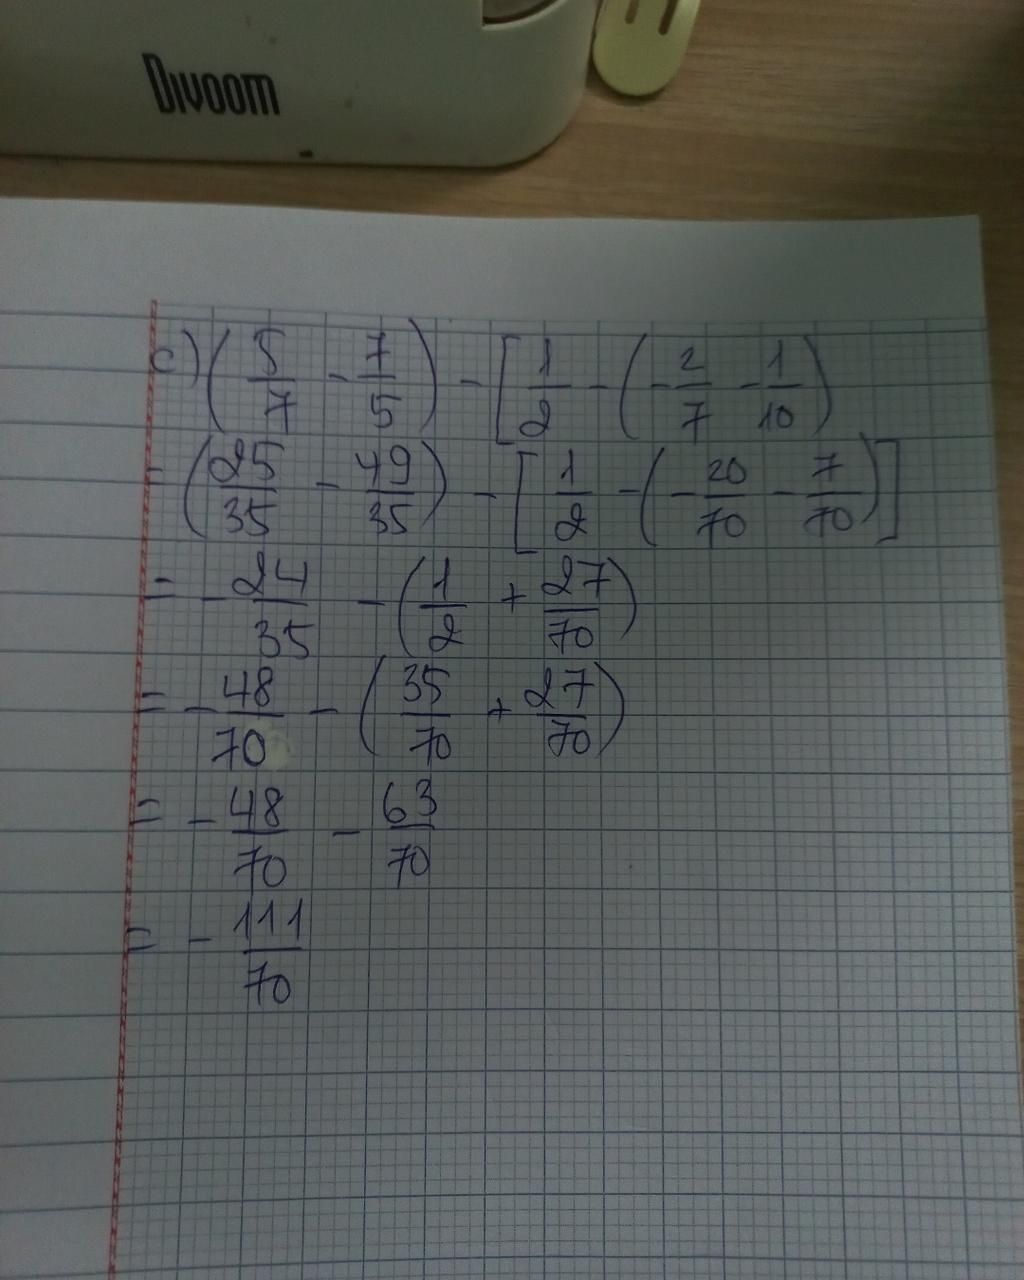 Divoom
c) (5/7 - 7/5) - [1/2 - (-2/7 - 1/10)
= (25/35 - 49/35) - [1/2 - (-20/70 - 7/70)]
= -24/35 - (1/2 + 27/70)
= -48/70 - (35/70 + 27/70)
= -48/70 - 63/70
= -111/70